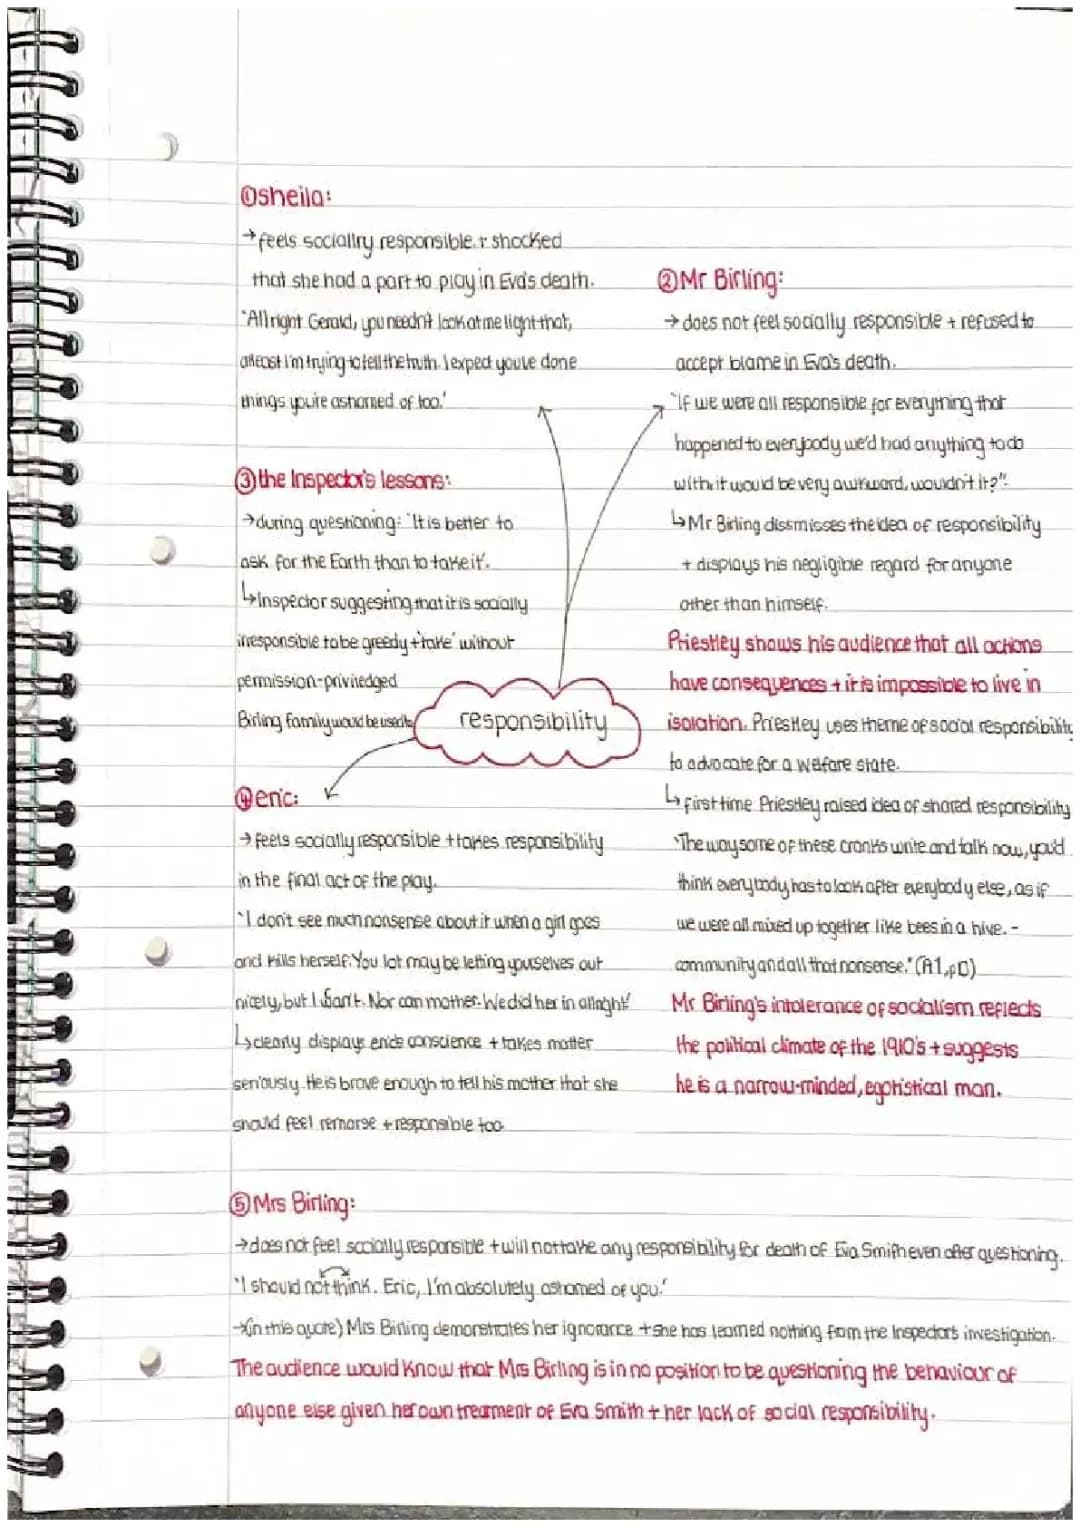 ①sheila:
→feels sociallry responsible + shocked
that she had a part to play in Eva's death.
"Allright Gerald, you needn't look at me light that,
atleast I'm trying to tell the truth. I expect you've done
things you're ashamed of too.'
②Mr Birling:
→ does not feel socially responsible + refused to
accept blame in Eva's death.
"If we were all responsible for everything that
happened to everybody we'd had anything to do
with, it would be very awkward, wouldn't it?".
↳Mr Birling dissmisses the idea of responsibility
+ displays his negligible regard for anyone
other than himself.
Priestley shows his audience that all actions
have consequences + it is impossible to live in
isolation. Priestley uses theme of social responsibility
to advocate for a welfare state.
↳ first time Priestley raised idea of shared responsibility
"The way some of these cranks write and talk now, you'd
think everybody has to look after everybody else, as if
we were all mixed up together like bees in a hive. -
community and all that nonsense." (A1, p10)
Mr Birling's intolerance of socialism reflects
the political climate of the 1910's + suggests
he is a narrow-minded, egotistical man.
③the Inspector's lessons:
→during questioning: 'It is better to
ask for the Earth than to take it'.
↳Inspector suggesting that it is socially
irresponsible to be greedy + 'take' without
permission-priviedged
Birling family would be used to
responsibility
④eric:
→ feels socially responsible + takes responsibility
in the final act of the play.
"I don't see much nonsense about it when a girl goes
and kills herself. You lot may be letting yourselves out
nicely, but I can't. Nor can mother. We did her in allright'
↳clearly displays eric's conscience + takes matter
seriously. He is brave enough to tell his mother that she
should feel remorse + responsible too.
⑤Mrs Birling:
→does not feel socially responsible + will not take any responsibility for death of Eva Smith even after questioning.
"I should not think. Eric, I'm absolutely ashamed of you.'
→(in this quote) Mrs Birling demonstrates her ignorance + she has learned nothing from the Inspector's investigation.
The audience would know that Mrs Birling is in no position to be questioning the behaviour of
anyone else given her own treament of Eva Smith + her lack of social responsibility.